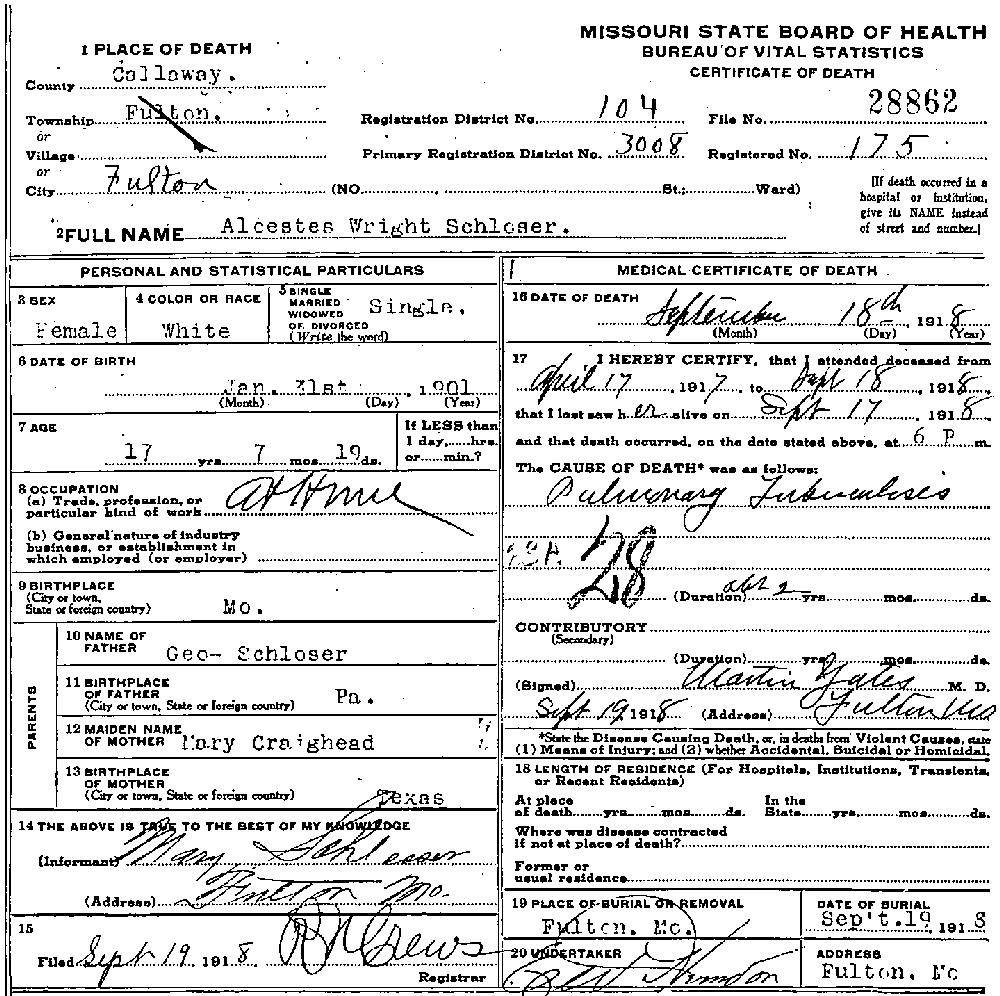 MISSOURI STATE BOARD OF HEALTH
BUREAU OF VITAL STATISTICS
CERTIFICATE OF DEATH
1 PLACE OF DEATH
County Callaway.
Township Fulton.
or
Village
or
City Fulton (NO. , St.; Ward)
Registration District No. 104 File No. 28862
Primary Registration District No. 3008 Registered No. 175
[If death occurred in a hospital or institution, give its NAME instead of street and number.]
2 FULL NAME Alcestes Wright Schloser.
PERSONAL AND STATISTICAL PARTICULARS
3 SEX Female
4 COLOR OR RACE White
5 SINGLE MARRIED WIDOWED OR DIVORCED (Write the word) Single.
6 DATE OF BIRTH
Jan. 31st , 1901
(Month) (Day) (Year)
7 AGE
17 yrs. 7 mos. 19 ds.
If LESS than 1 day,.....hrs. or.....min.?
8 OCCUPATION
(a) Trade, profession, or particular kind of work At Home
(b) General nature of industry business, or establishment in which employed (or employer)
9 BIRTHPLACE
(City or town, State or foreign country) Mo.
PARENTS
10 NAME OF FATHER Geo- Schloser
11 BIRTHPLACE OF FATHER (City or town, State or foreign country) Pa.
12 MAIDEN NAME OF MOTHER Mary Craighead
13 BIRTHPLACE OF MOTHER (City or town, State or foreign country) Texas
14 THE ABOVE IS TRUE TO THE BEST OF MY KNOWLEDGE
(Informant) Mary Schlosser
(Address) Fulton Mo.
15
Filed Sept 19 1918. RN Crews
Registrar
MEDICAL CERTIFICATE OF DEATH
16 DATE OF DEATH
September 18th , 1918
(Month) (Day) (Year)
17 I HEREBY CERTIFY, that I attended deceased from
April 17 , 1917, to Sept 18 , 1918
that I last saw her alive on Sept 17 , 1918
and that death occurred, on the date stated above, at 6 P m.
The CAUSE OF DEATH* was as follows:
Pulmonary Tuberculosis
28
(Duration) abt 2 yrs. mos. ds.
CONTRIBUTORY
(Secondary)
(Duration) yrs. mos. ds.
(Signed) Martin Yates M. D.
Sept 19, 1918 (Address) Fulton Mo
*State the Disease Causing Death, or, in deaths from Violent Causes, state
(1) Means of Injury; and (2) whether Accidental, Suicidal or Homicidal.
18 LENGTH OF RESIDENCE (For Hospitals, Institutions, Transients, or Recent Residents)
At place of death.....yrs.....mos.....ds. In the State.....yrs.....mos.....ds.
Where was disease contracted if not at place of death?
Former or usual residence
19 PLACE OF BURIAL OR REMOVAL
Fulton. Mo.
DATE OF BURIAL
Sep't. 19 1918
20 UNDERTAKER
Herndon
ADDRESS
Fulton. Mo